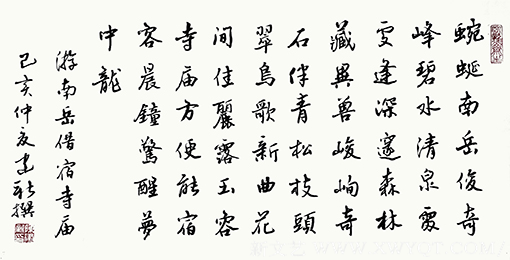 蜿蜒南岳俊奇
峰碧水清泉
逢深邃森林
藏異獸峻峋奇
石伴青松枝頭
翠鳥歌新曲花
间佳麗露玉容
寺庙方便能宿
客晨鐘驚醒夢
中龍
游南岳借宿寺庙
己亥仲夏建撰